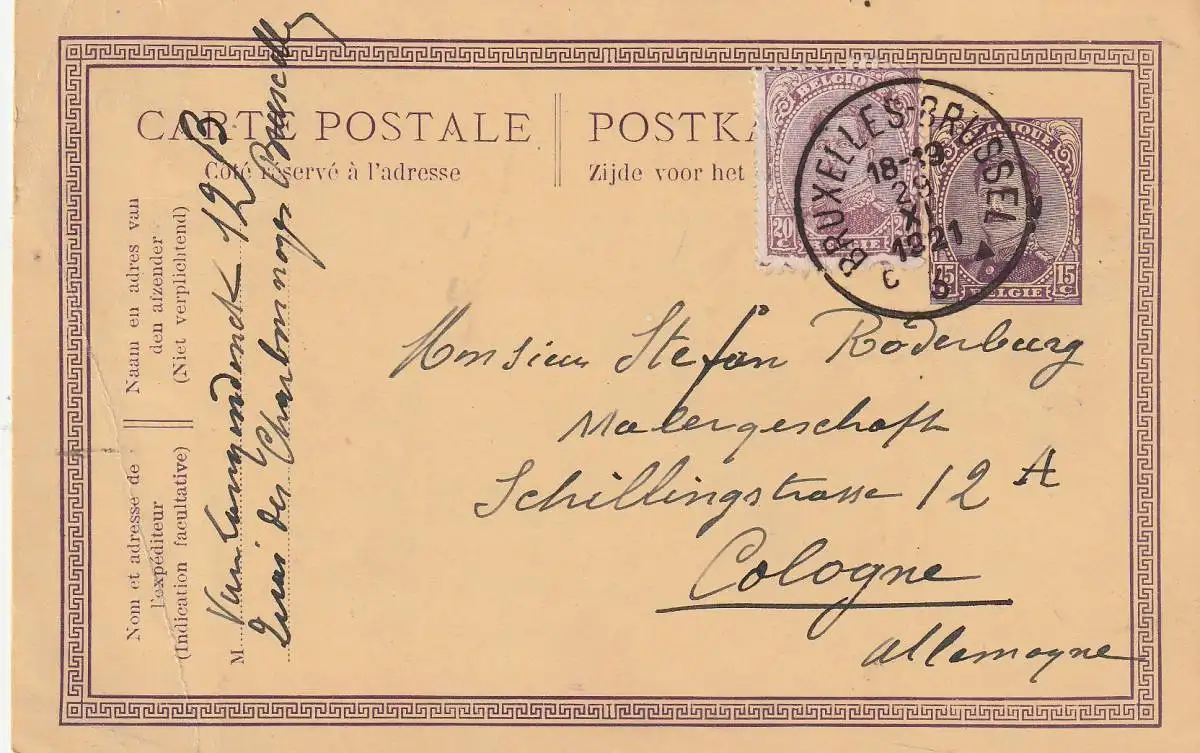 CARTE POSTALE
Coté réservé à l'adresse
POSTKA
Zijde voor het
BELGIQUE
20
BELGIE
BELGIQUE
15 15
BELGIE
BRUXELLES-BRUSSEL
18-19
29
XI
1921
6
Monsieur Stefan Roderburg
Malergeschaft
Schillingstrasse 12 A
Cologne
Allemagne
Naam en adres van
den afzender
(Niet verplichtend)
Nom et adresse de
l'expéditeur
(Indication facultative)
M.
12 B
Quai des Charbonnages Bruxelles